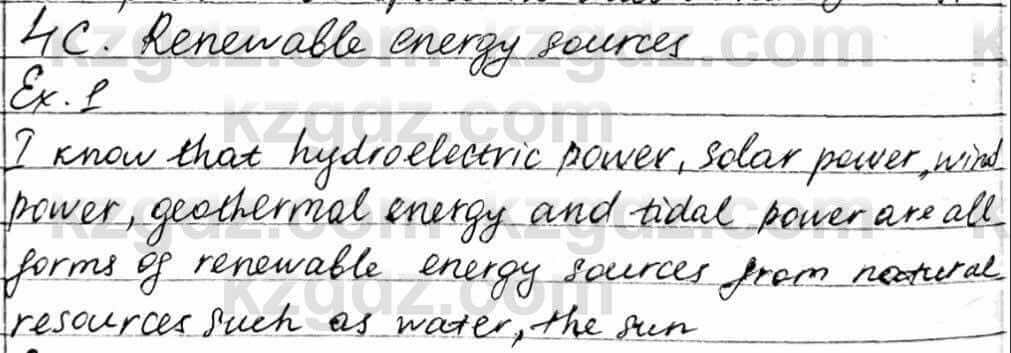 4C. Renewable energy sources
Ex. 1
I know that hydroelectric power, solar power, wind
power, geothermal energy and tidal power are all
forms of renewable energy sources from natural
resources such as water, the sun